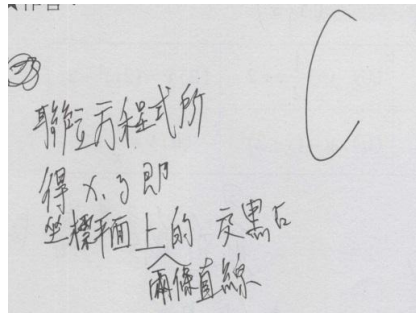 聯立方程式所
得 x、y 即
坐標平面上的交點
兩條直線
C